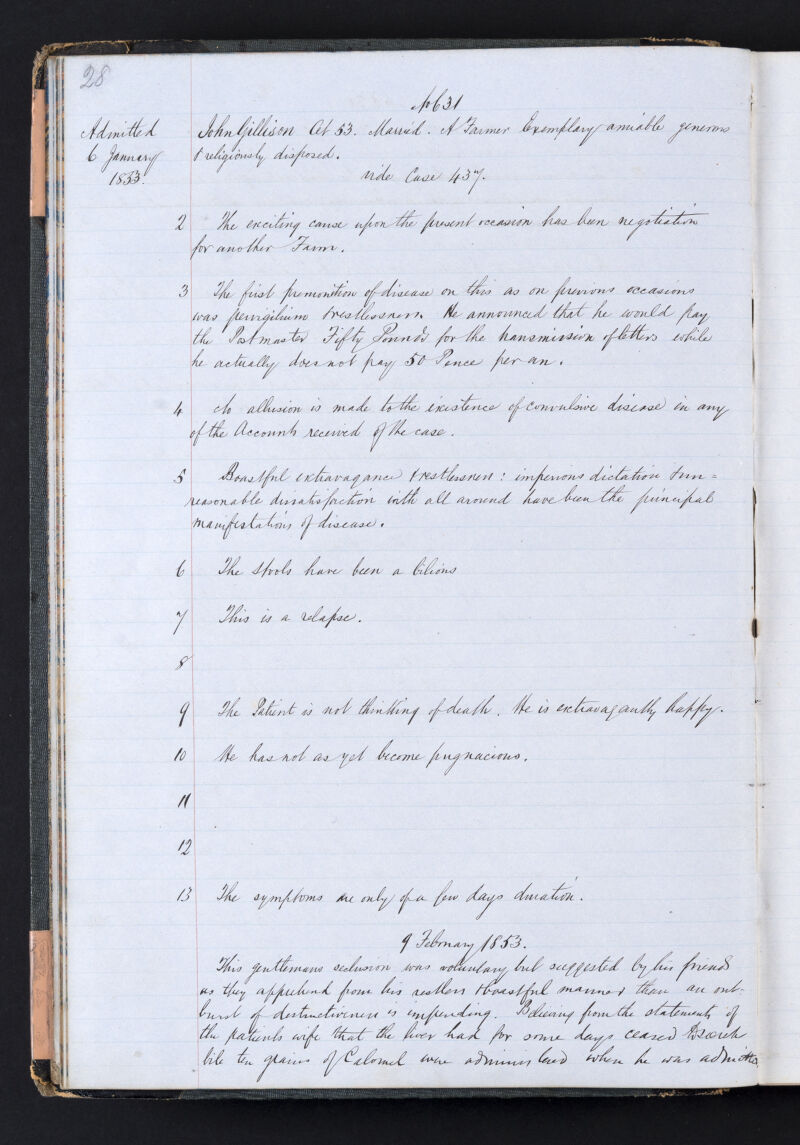 28
No 631
Admitted
6 January
1853.
John Gillison Aet 53. Married. A Farmer Exemplary amiable generous
& religiously disposed.
vide Case 437.
2 The exciting cause upon the present occasion has been negotiation
for another Farm.
3 The first premonition of disease on this as on previous occasions
was pervigilium & restlessness. He announced that he would pay
the Postmaster Fifty Pounds for the transmission of letters while
he actually does not pay 50 Pence per an.
4 No allusion is made to the existence of convulsive disease in any
of the Accounts received of the case.
5 Boastful extravagance & restlessness: imperious dictation & un=
reasonable dissatisfaction with all around have been the principal
manifestations of disease.
6 The stools have been a bilious
7 This is a relapse.
8
9 The Patient is not thinking of death. He is extravagantly happy.
10 He has not as yet become pugnacious.
11
12
13 The symptoms are only of a few days duration.
9 February 1853.
This gentlemans seclusion was voluntary but suggested by his friends
as they apprehend from his restless & boastful manner that an out-
burst of destructiveness is impending. Believing from the statements of
the patients wife that the liver had for some days ceased to secrete
bile ten grains of Calomel were administered when he was admitted